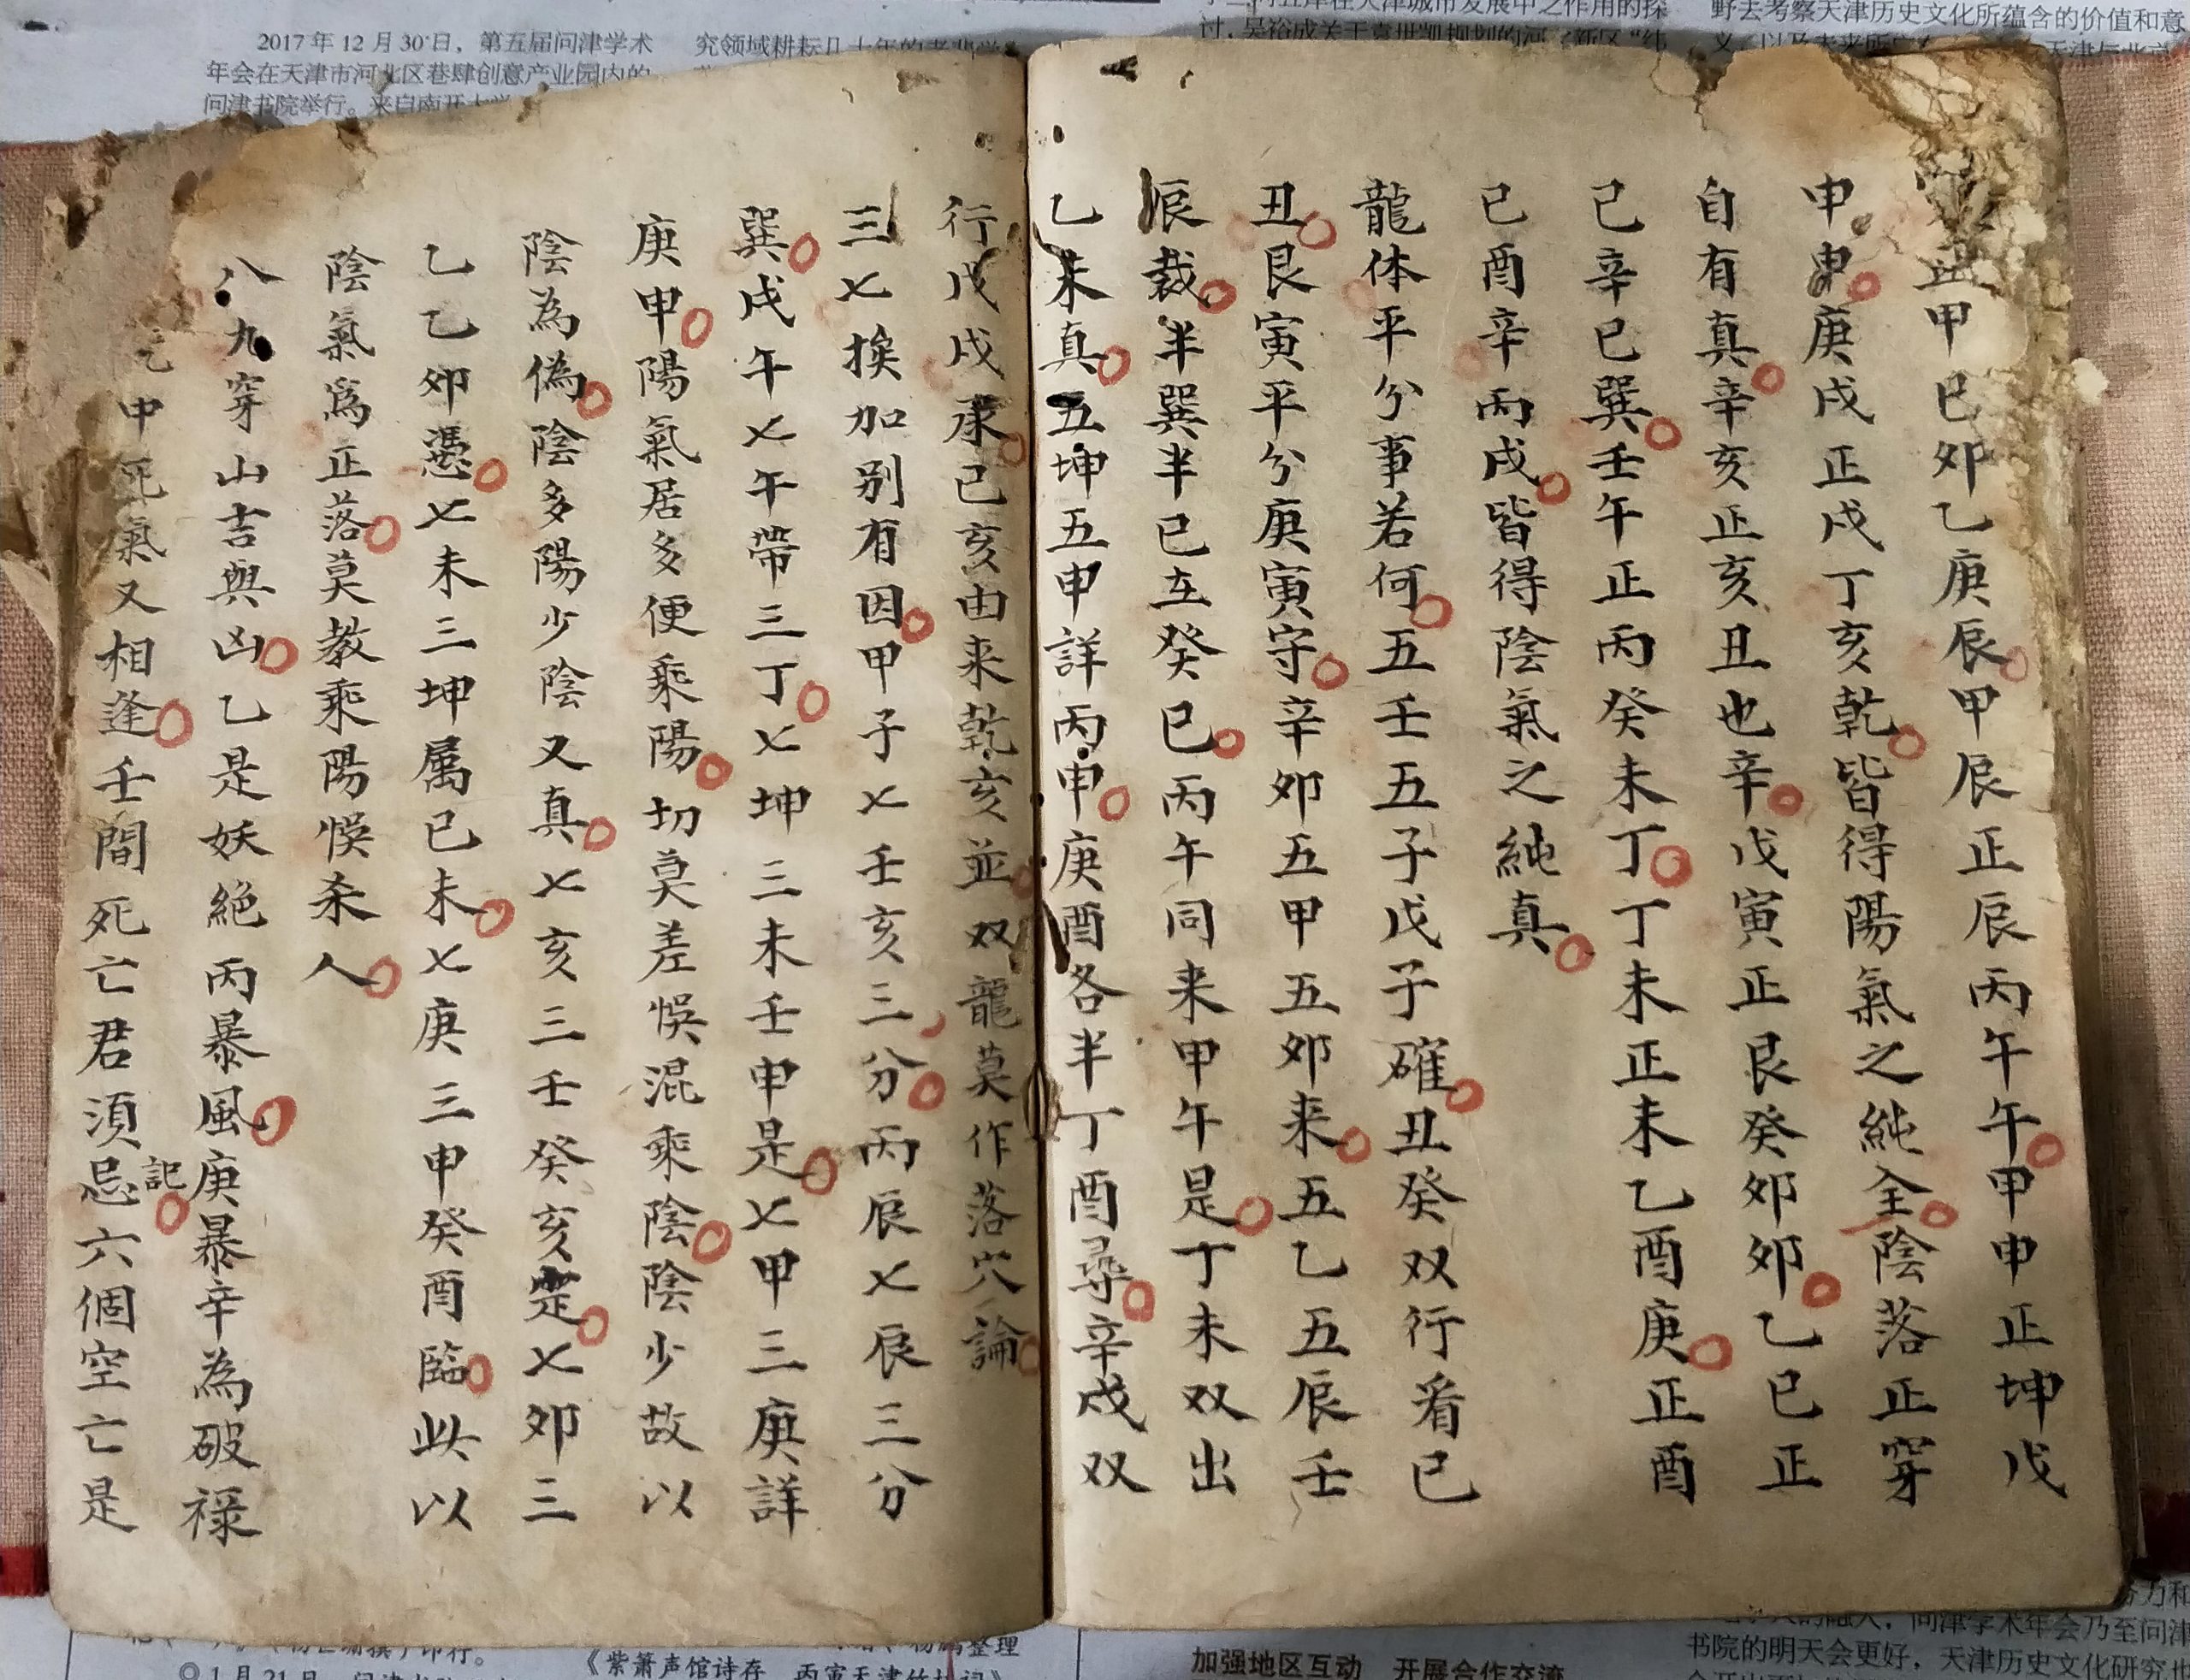 正甲巳卯乙庚辰甲辰正辰丙午午甲申正坤戊
申庚戌正戌丁亥乾皆得陽氣之純全陰落正穿
自有真辛亥正亥丑也辛戊寅正艮癸卯卯乙巳正
己辛巳巽壬午正丙癸未丁丁未正未乙酉庚正酉
已酉辛丙戌皆得陰氣之純真
龍体平分事若何五壬五子戊子確丑癸双行看已
丑艮寅平分庚寅守辛卯五甲五卯来五乙五辰壬
辰裁半巽半巳在癸巳丙午同来甲午是丁未双出
乙未真五坤五申詳丙申庚酉各半丁酉尋辛戌双
行戊戌來己亥由来乾亥並双龍莫作落穴論
三七挨加别有因甲子七壬亥三分丙辰七辰三分
巽戌午七午帶三丁七坤三未壬申是七甲三庚詳
庚甲陽氣居多便乘陽切莫差悮混乘陰陰少故以
陰為偽陰多陽少陰又真七亥三壬癸亥是七卯三
乙乙卯憑七未三坤属已未七庚三申癸酉臨此以
陰氣為正落莫教乘陽悮杀人
八九穿山吉與凶乙是妖絕丙暴風庚暴辛為破禄
甲死氣又相逢壬間死亡君須忌記六個空亡是
2017年12月30日，第五届问津学术
年会在天津市河北区巷肆创意产业园内的
问津书院举行。来自南开大学
野去考察天津历史文化所蕴含的价值和意
《紫箫声馆诗存
加强地区互动 开展合作交流
书院的明天会更好，天津历史文化研究也